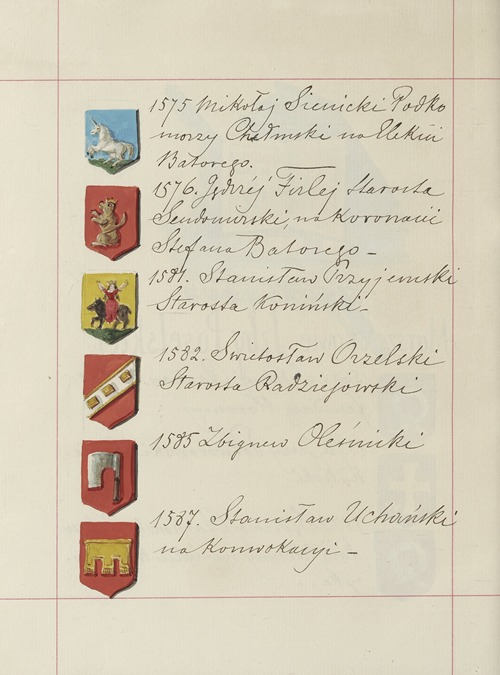 1575 Mikołaj Sienicki Podko
morzy Chełmski na Elekcii
Batorego.
1576. Jędrzéj Firlej Starosta
Sendomirski, na Koronacii
Stefana Batorego –
1581. Stanisław Przyjemski
Starosta Koniński –
1582. Swietosław Orzelski
Starosta Radziejowski
1585 Zbigniew Oleśnicki
1587. Stanisław Uchański
na Konwokacyi –